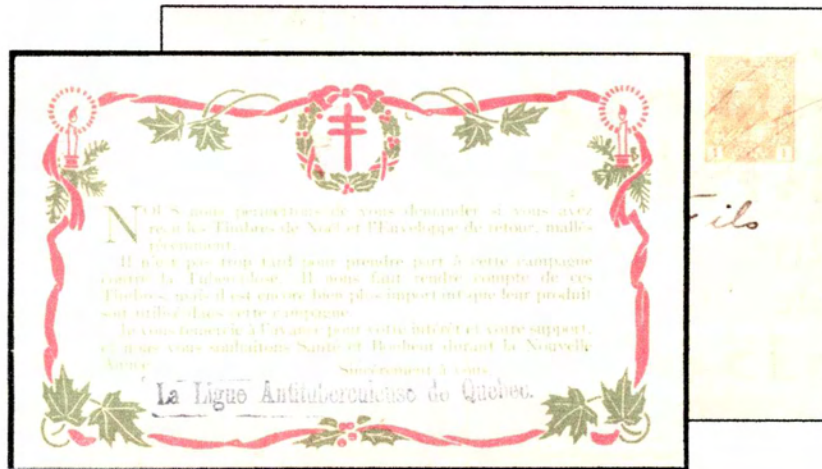 1 1
Fils
NOUS nous permettons de vous demander si vous avez
reçu les Timbres de Noël et l'Enveloppe de retour, mallés
récemment.
Il n'est pas trop tard pour prendre part à cette campagne
contre la Tuberculose. Il nous faut rendre compte de ces
Timbres, mais il est encore bien plus important que leur produit
soit utilisé dans cette campagne.
Je vous remercie à l'avance pour votre intérêt et votre support,
et nous vous souhaitons Santé et Bonheur durant la Nouvelle
Année.
Sincèrement à vous,
La Ligue Antituberculeuse de Quebec.